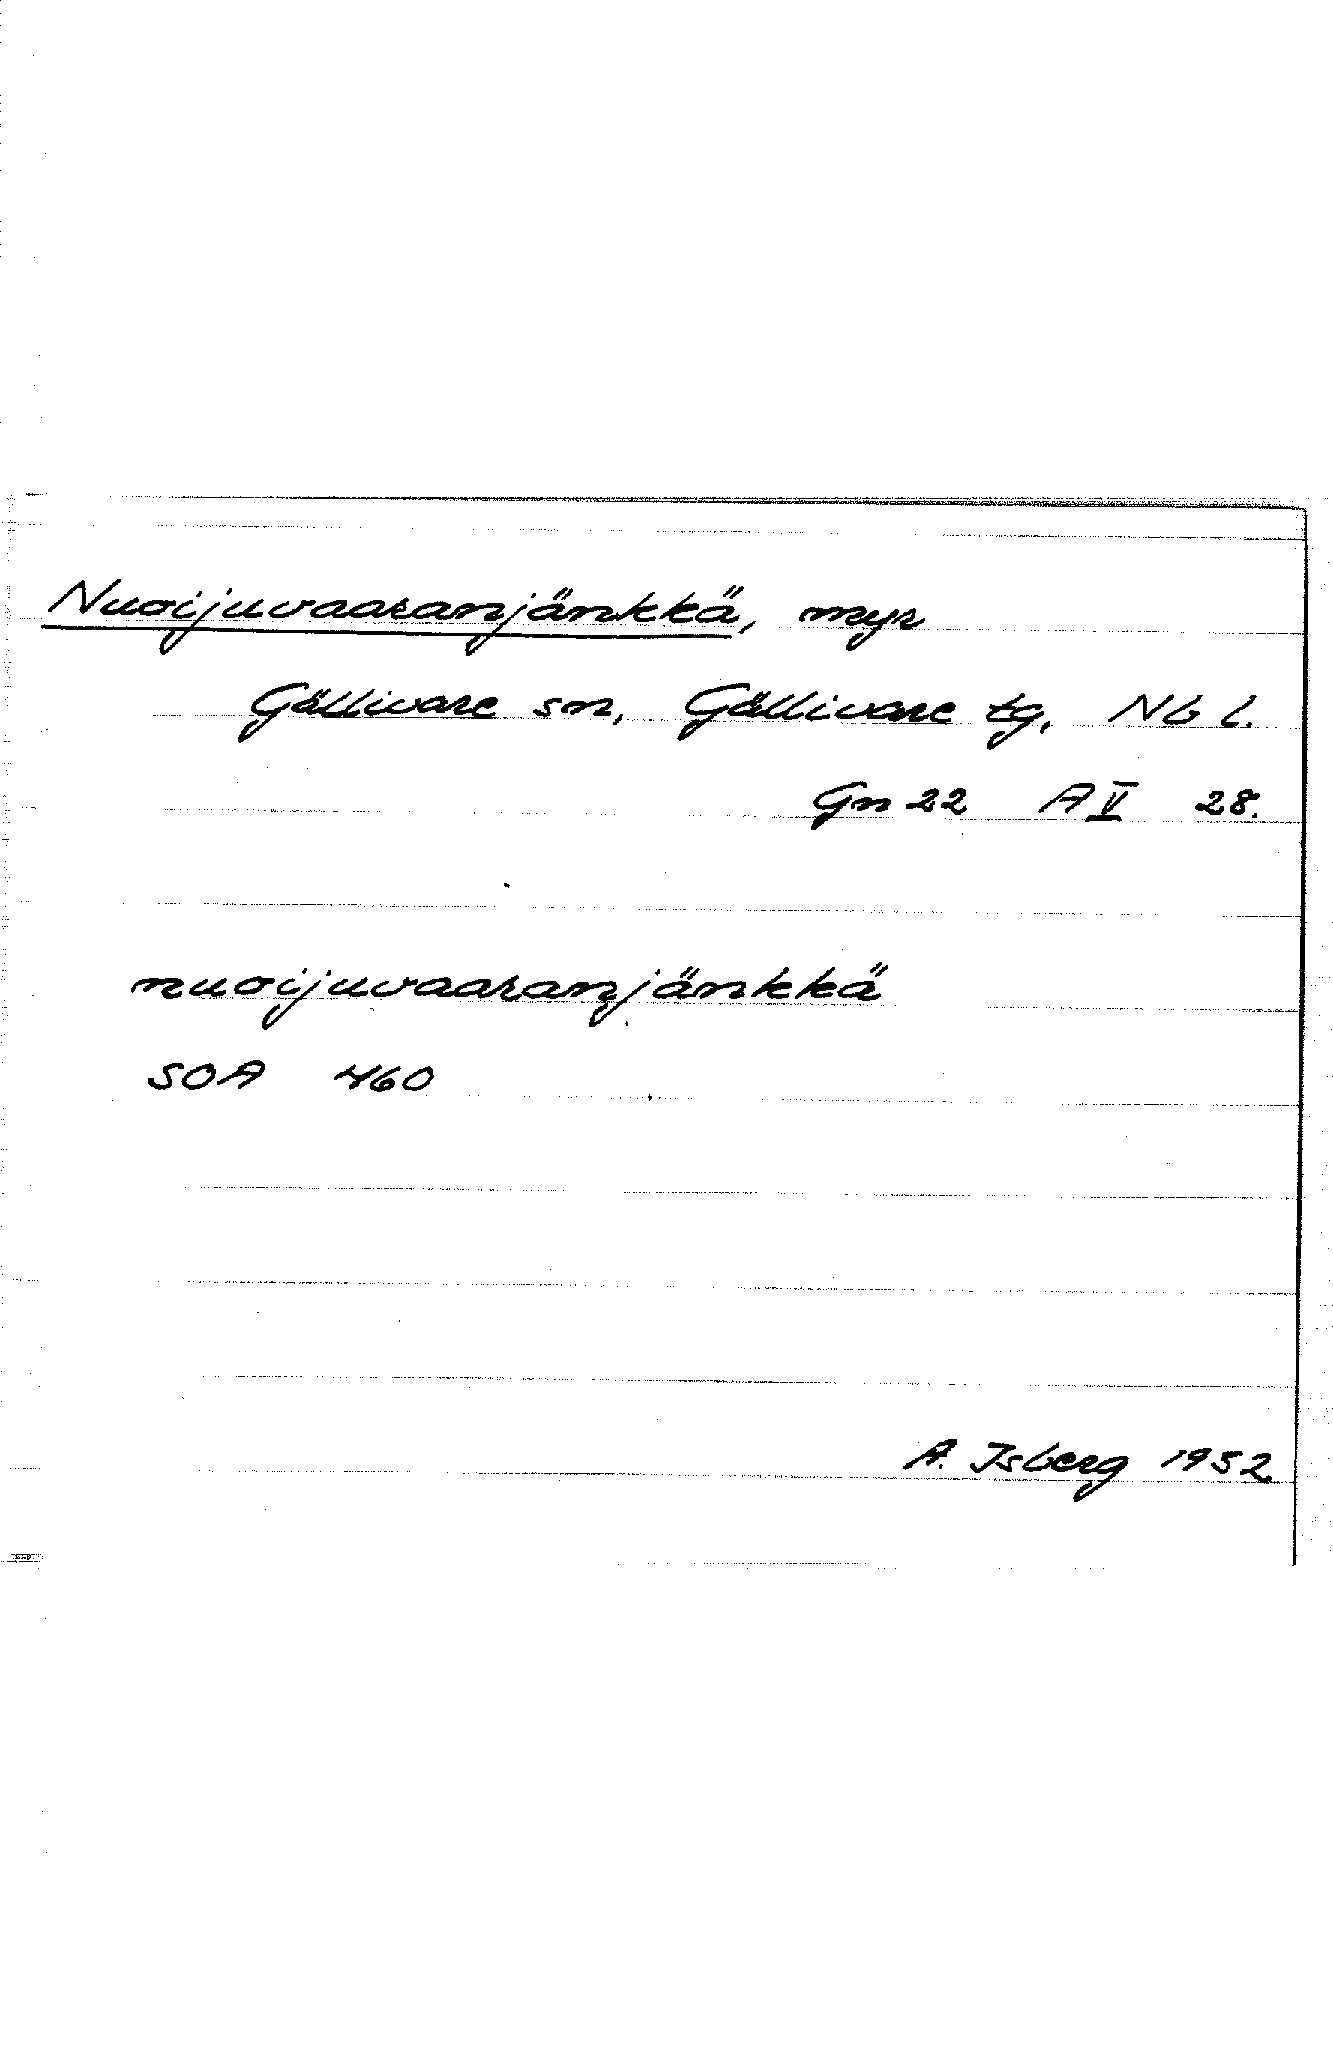 Nuoijuvaaranjänkkä, myr
Gällivare sn, Gällivare tg, Nb l.
Gn 22 A V 28.
nuoijuvaaranjänkkä
SOA 460
A. Isberg 1952